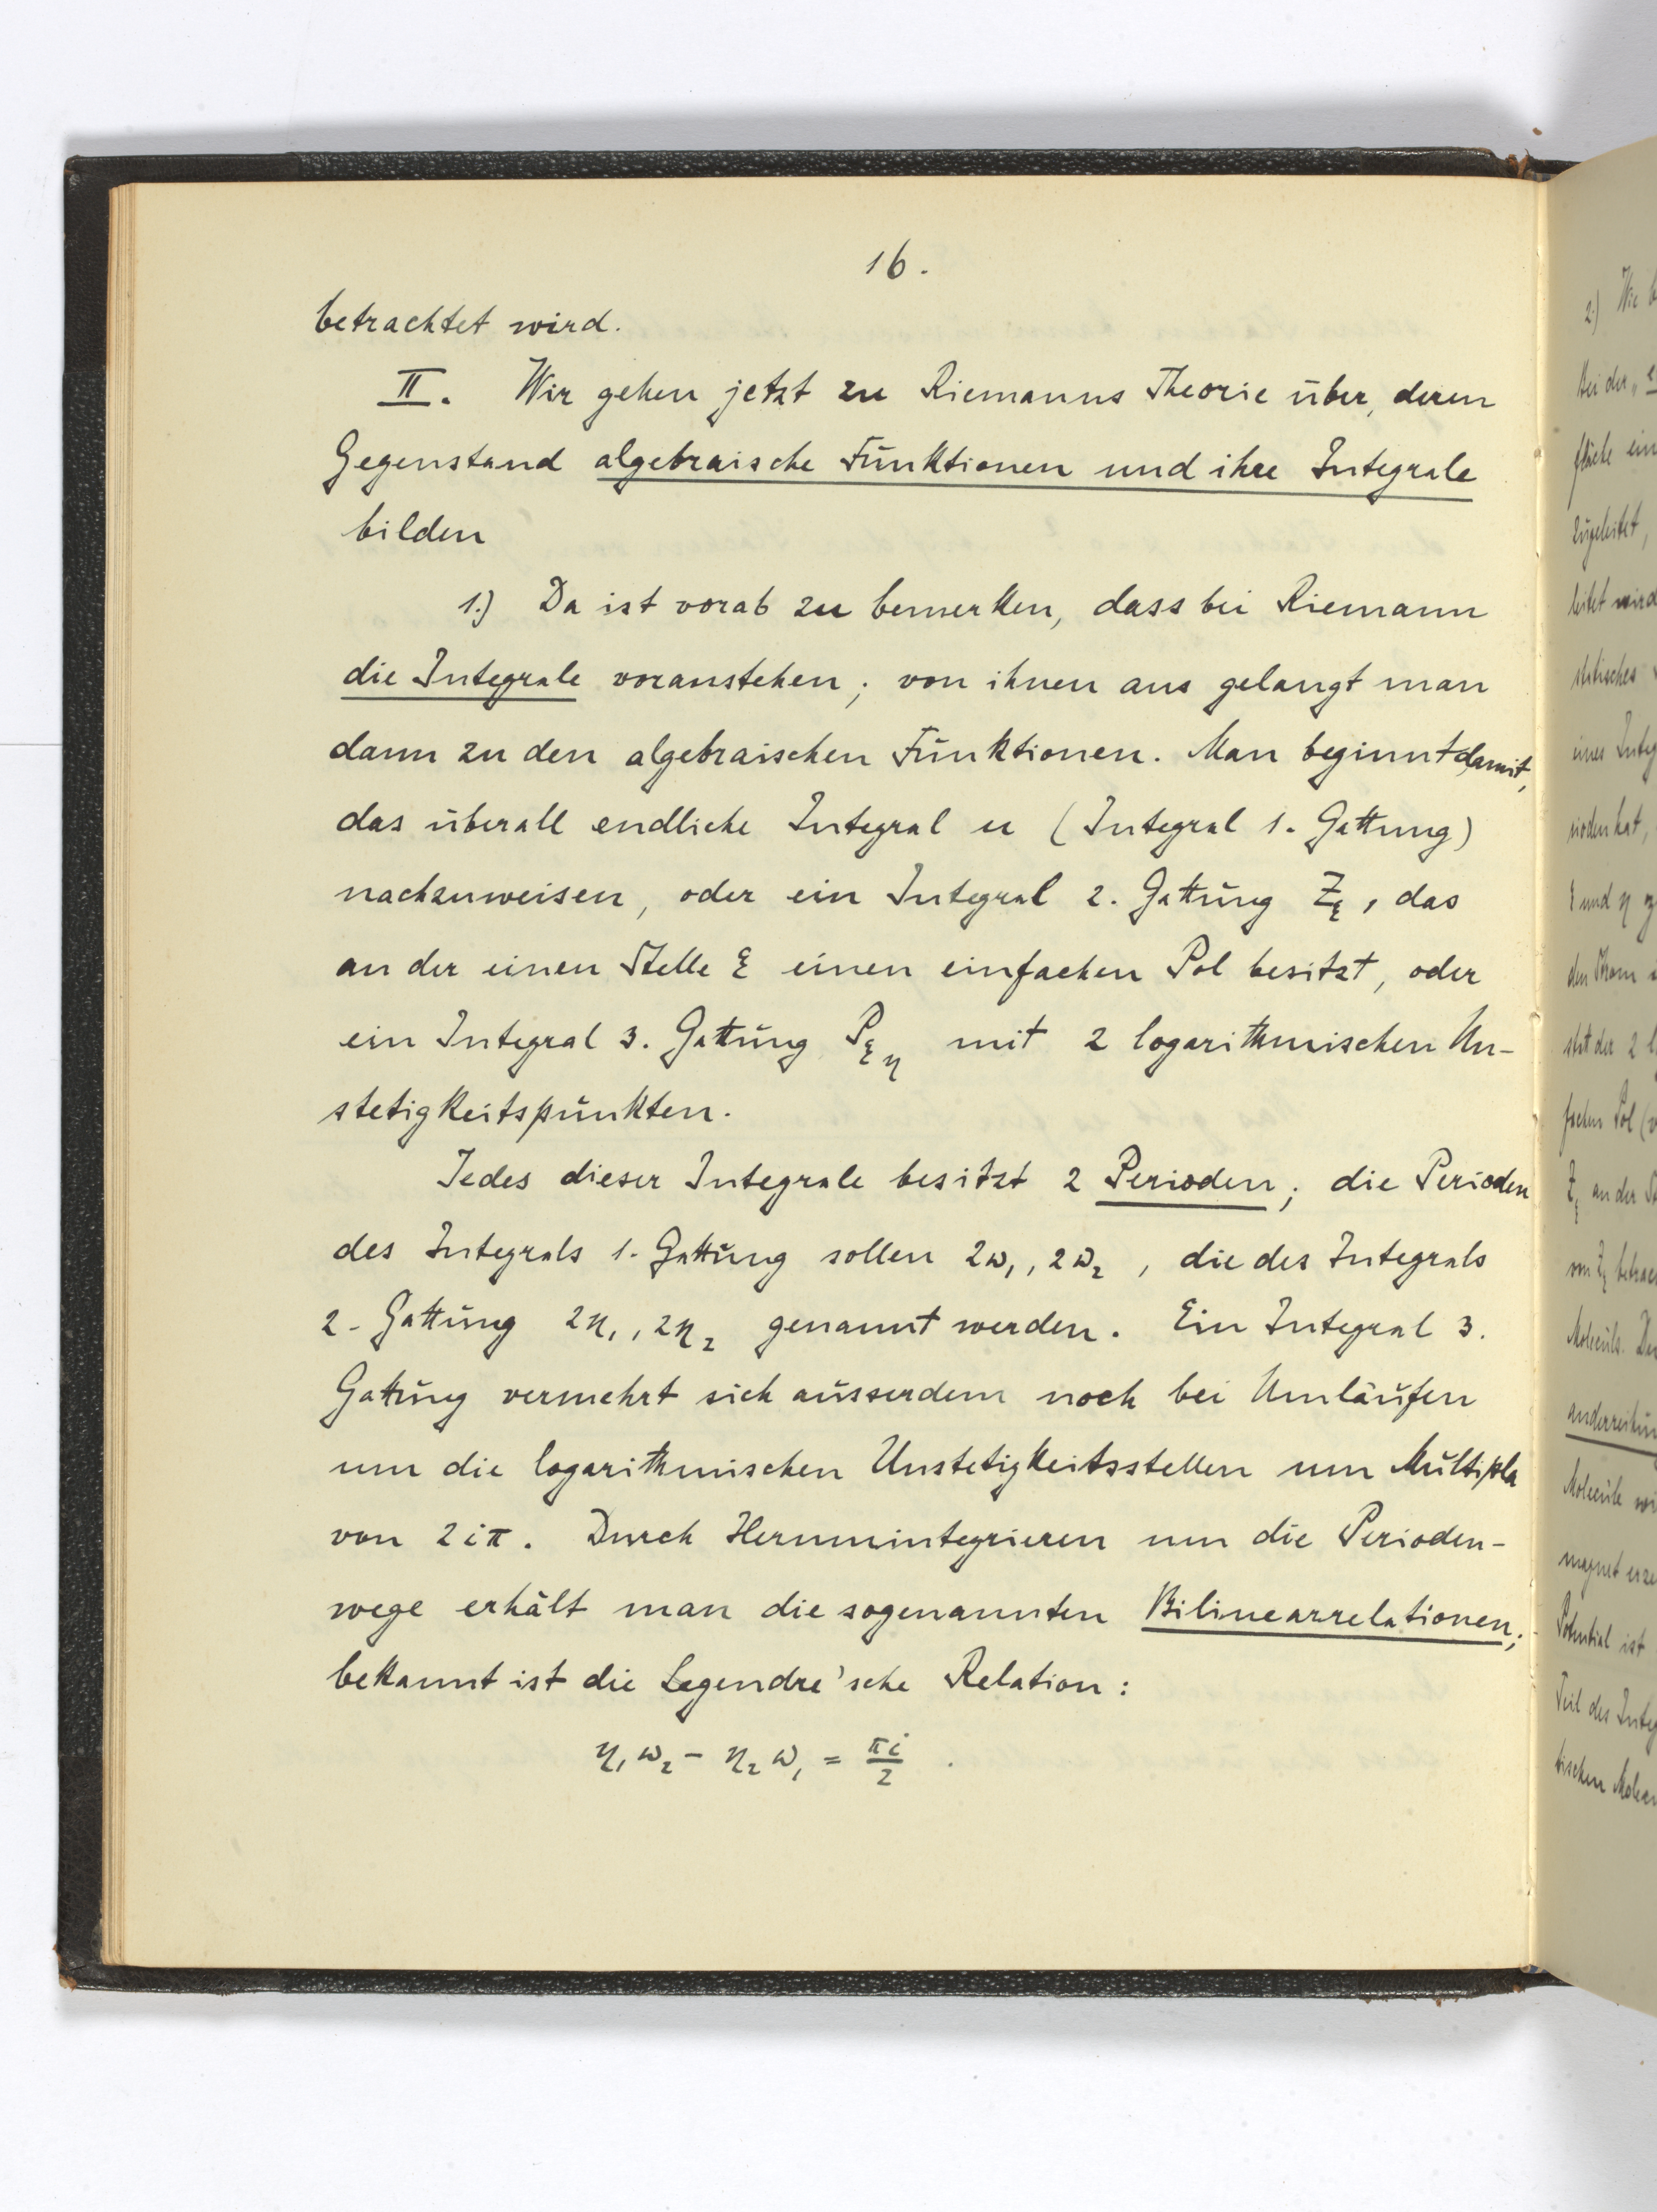 16.
betrachtet wird.
II. Wir gehen jetzt zu Riemanns Theorie über, deren
Gegenstand algebraische Funktionen und ihre Integrale
bilden
1.) Da ist vorab zu bemerken, dass bei Riemann
die Integrale voranstehen; von ihnen aus gelangt man
dann zu den algebraischen Funktionen. Man beginnt damit,
das überall endliche Integral u (Integral 1. Gattung)
nachzuweisen, oder ein Integral 2. Gattung Z_ξ, das
an der einen Stelle ξ einen einfachen Pol besitzt, oder
ein Integral 3. Gattung P_ξη mit 2 logarithmischen Un-
stetigkeitspunkten.
Jedes dieser Integrale besitzt 2 Perioden; die Perioden
des Integrals 1. Gattung sollen 2ω₁, 2ω₂, die des Integrals
2. Gattung 2η₁, 2η₂ genannt werden. Ein Integral 3.
Gattung vermehrt sich ausserdem noch bei Umläufen
um die logarithmischen Unstetigkeitsstellen um Multipla
von 2iπ. Durch Herumintegrieren um die Perioden-
wege erhält man die sogenannten Bilinearrelationen;
bekannt ist die Legendre'sche Relation:
η₁ω₂ - η₂ω₁ = πi/2 .
2.) Wie
Bei der
fläche ein
zugeleitet,
leitet wird
eines Integ
ξ und η
fachen Pol
Z_ξ an der
von Z_ξ
Moleculs.
Molecüle
magnet
Potential ist
Teil des Integ
tischen